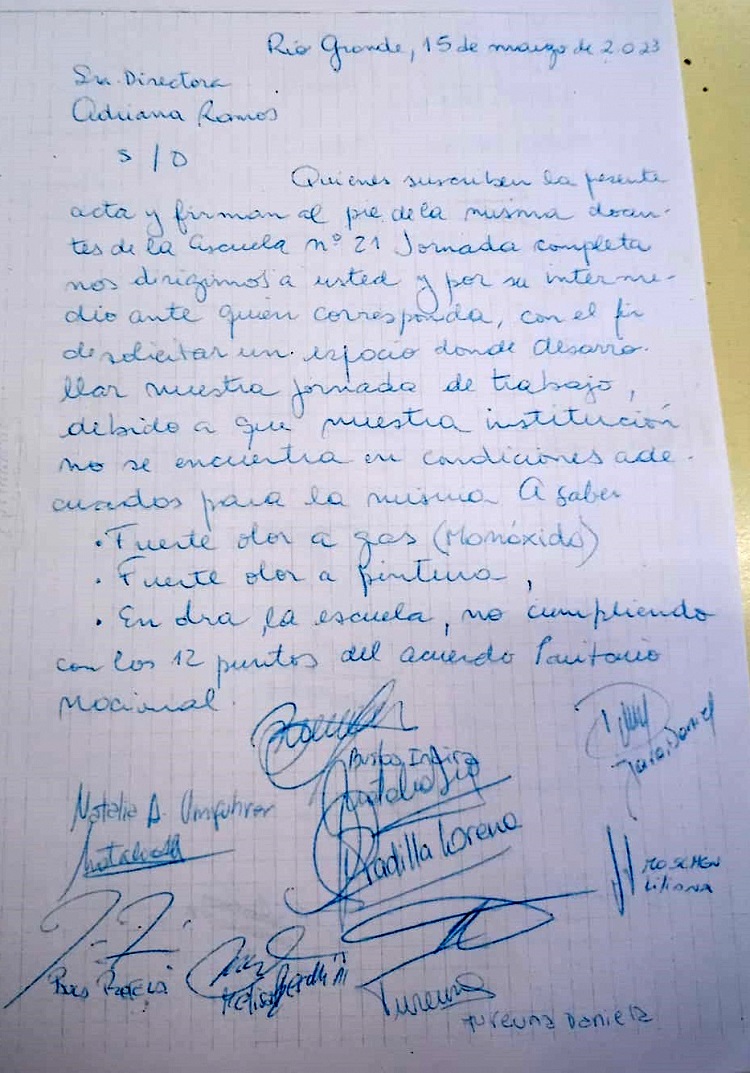 Río Grande, 15 de marzo de 2.023
Sra. Directora
Adriana Ramos
S / D
Quienes suscriben la presente
acta y firman al pie de la misma docen-
tes de la Escuela nº 21 Jornada completa
nos dirigimos a usted y por su interme-
dio ante quien corresponda, con el fin
de solicitar un espacio donde desarro-
llar nuestra jornada de trabajo,
debido a que nuestra institución
no se encuentra en condiciones ade-
cuados para la misma A saber
• Fuerte olor a gas (Monóxido)
• Fuerte olor a pintura,
• En la escuela, no cumpliendo
con los 12 puntos del acuerdo Paritario
Nacional.
Jara Daniel
Natalia A.
Padilla Lorena
Moschen
Liliana
Tureuna
Tureuna Daniela